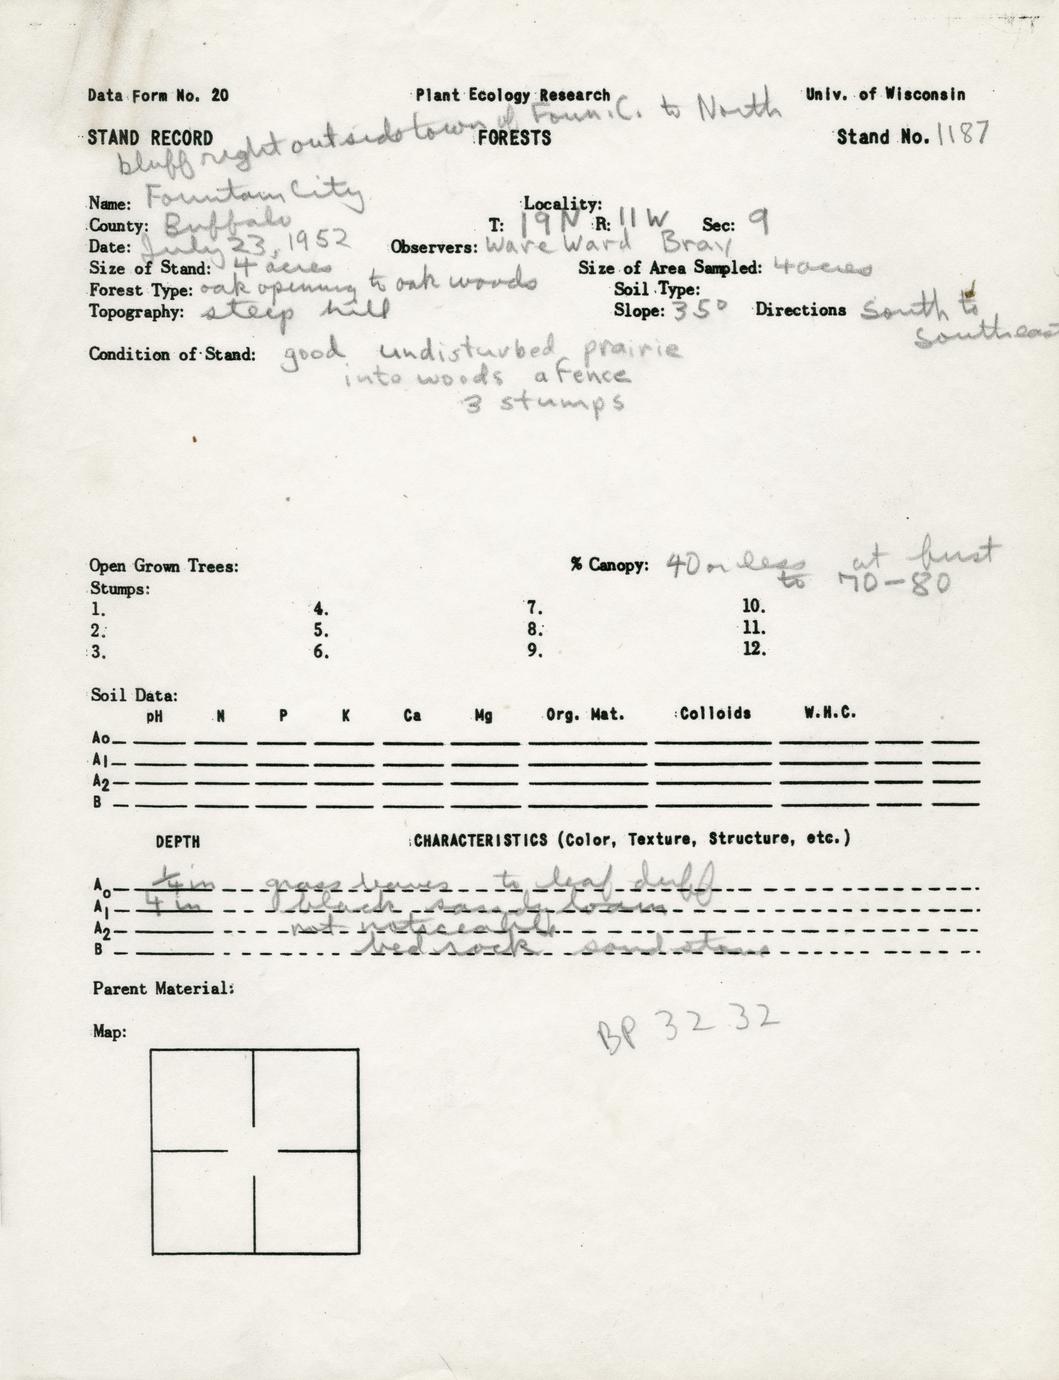 Data Form No. 20 Plant Ecology Research Univ. of Wisconsin
STAND RECORD FORESTS Stand No. 1187
bluff right outside town of Foun. C. to North
Name: Fountain City Locality:
County: Buffalo T: 19N R: 11W Sec: 9
Date: July 23, 1952 Observers: Ware Ward Bray
Size of Stand: 4 acres Size of Area Sampled: 4 acres
Forest Type: oak opening to oak woods Soil Type:
Topography: steep hill Slope: 35° Directions South to
Southeast
Condition of Stand: good undisturbed prairie
into woods a fence
3 stumps
Open Grown Trees: % Canopy: 40 or less at first
to 70-80
Stumps:
1. 4. 7. 10.
2. 5. 8. 11.
3. 6. 9. 12.
Soil Data:
pH N P K Ca Mg Org. Mat. Colloids W.H.C.
Ao
A1
A2
B
DEPTH CHARACTERISTICS (Color, Texture, Structure, etc.)
Ao 1/4 in grass leaves to leaf duff
A1 4 in black sandy loam
A2 not noticeable
B bedrock sandstone
Parent Material:
Map:
BP 32 32